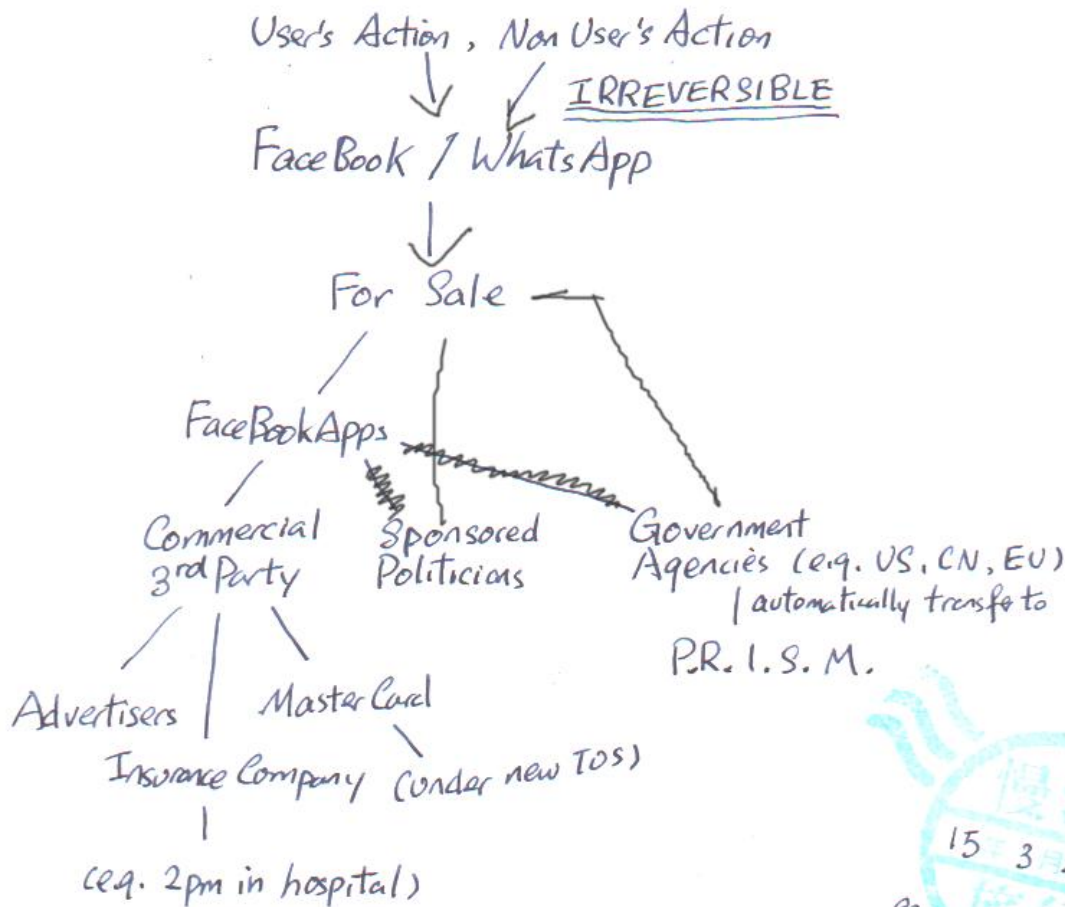 User's Action, Non User's Action
IRREVERSIBLE
FaceBook / WhatsApp
For Sale
FaceBookApps
Commercial
3rd Party
Sponsored
Politicians
Government
Agencies (e.g. US, CN, EU)
automatically transfe to
P.R.I.S.M.
Advertisers
MasterCard
Insurance Company
(under new TOS)
(e.g. 2pm in hospital)
15 3 月